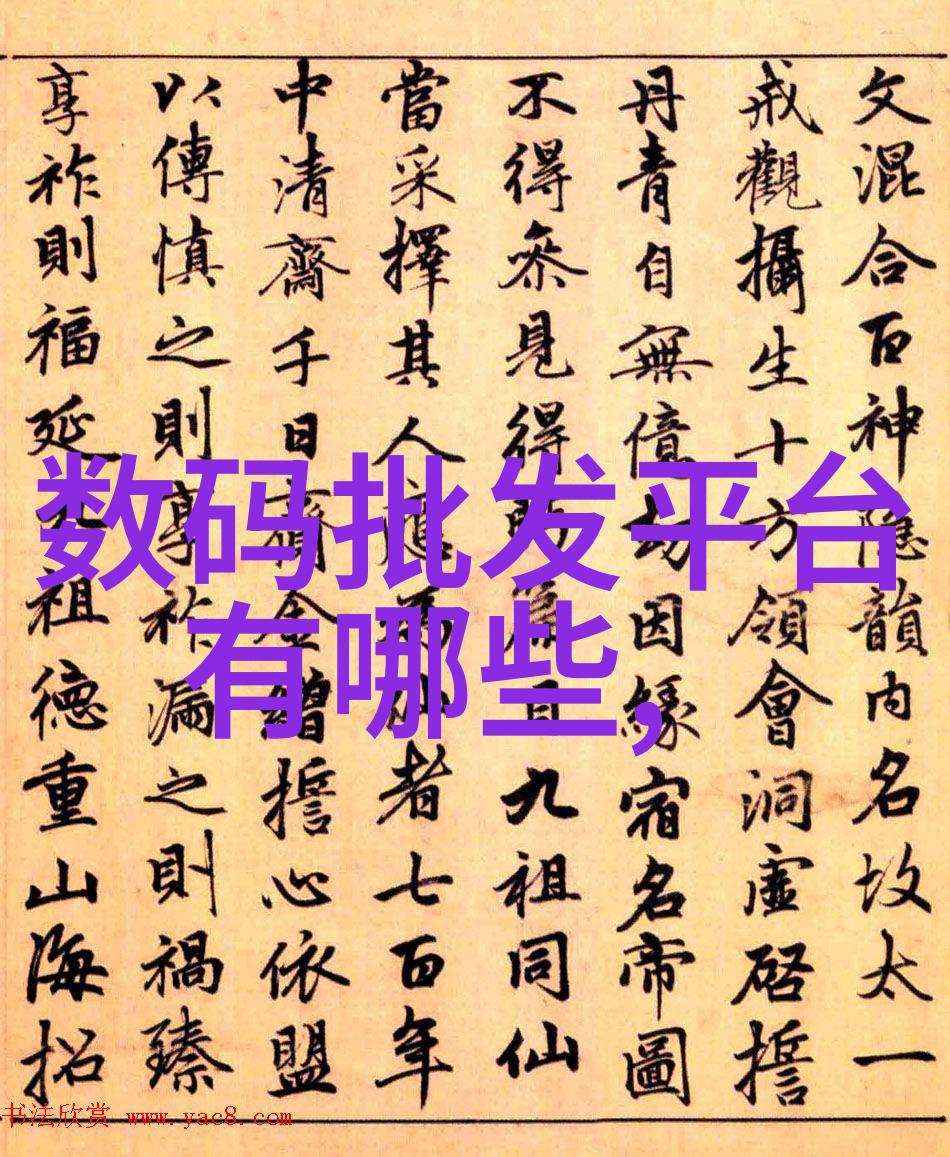 文混合百神隐韻内名故太一
戒觀攝生十方領會洞虚啓誓
丹青自無億劫因緣宿名帝圖
不得叅見得篇目九祖同仙
當采擇其人應者七百年
中清齋千日齎金繒誓心依盟
以傳慎之則享祚漏之則禍臻
享祚則福延祖德重山海招
数码批发平台
有哪些,
书法欣赏 www.yac8.com